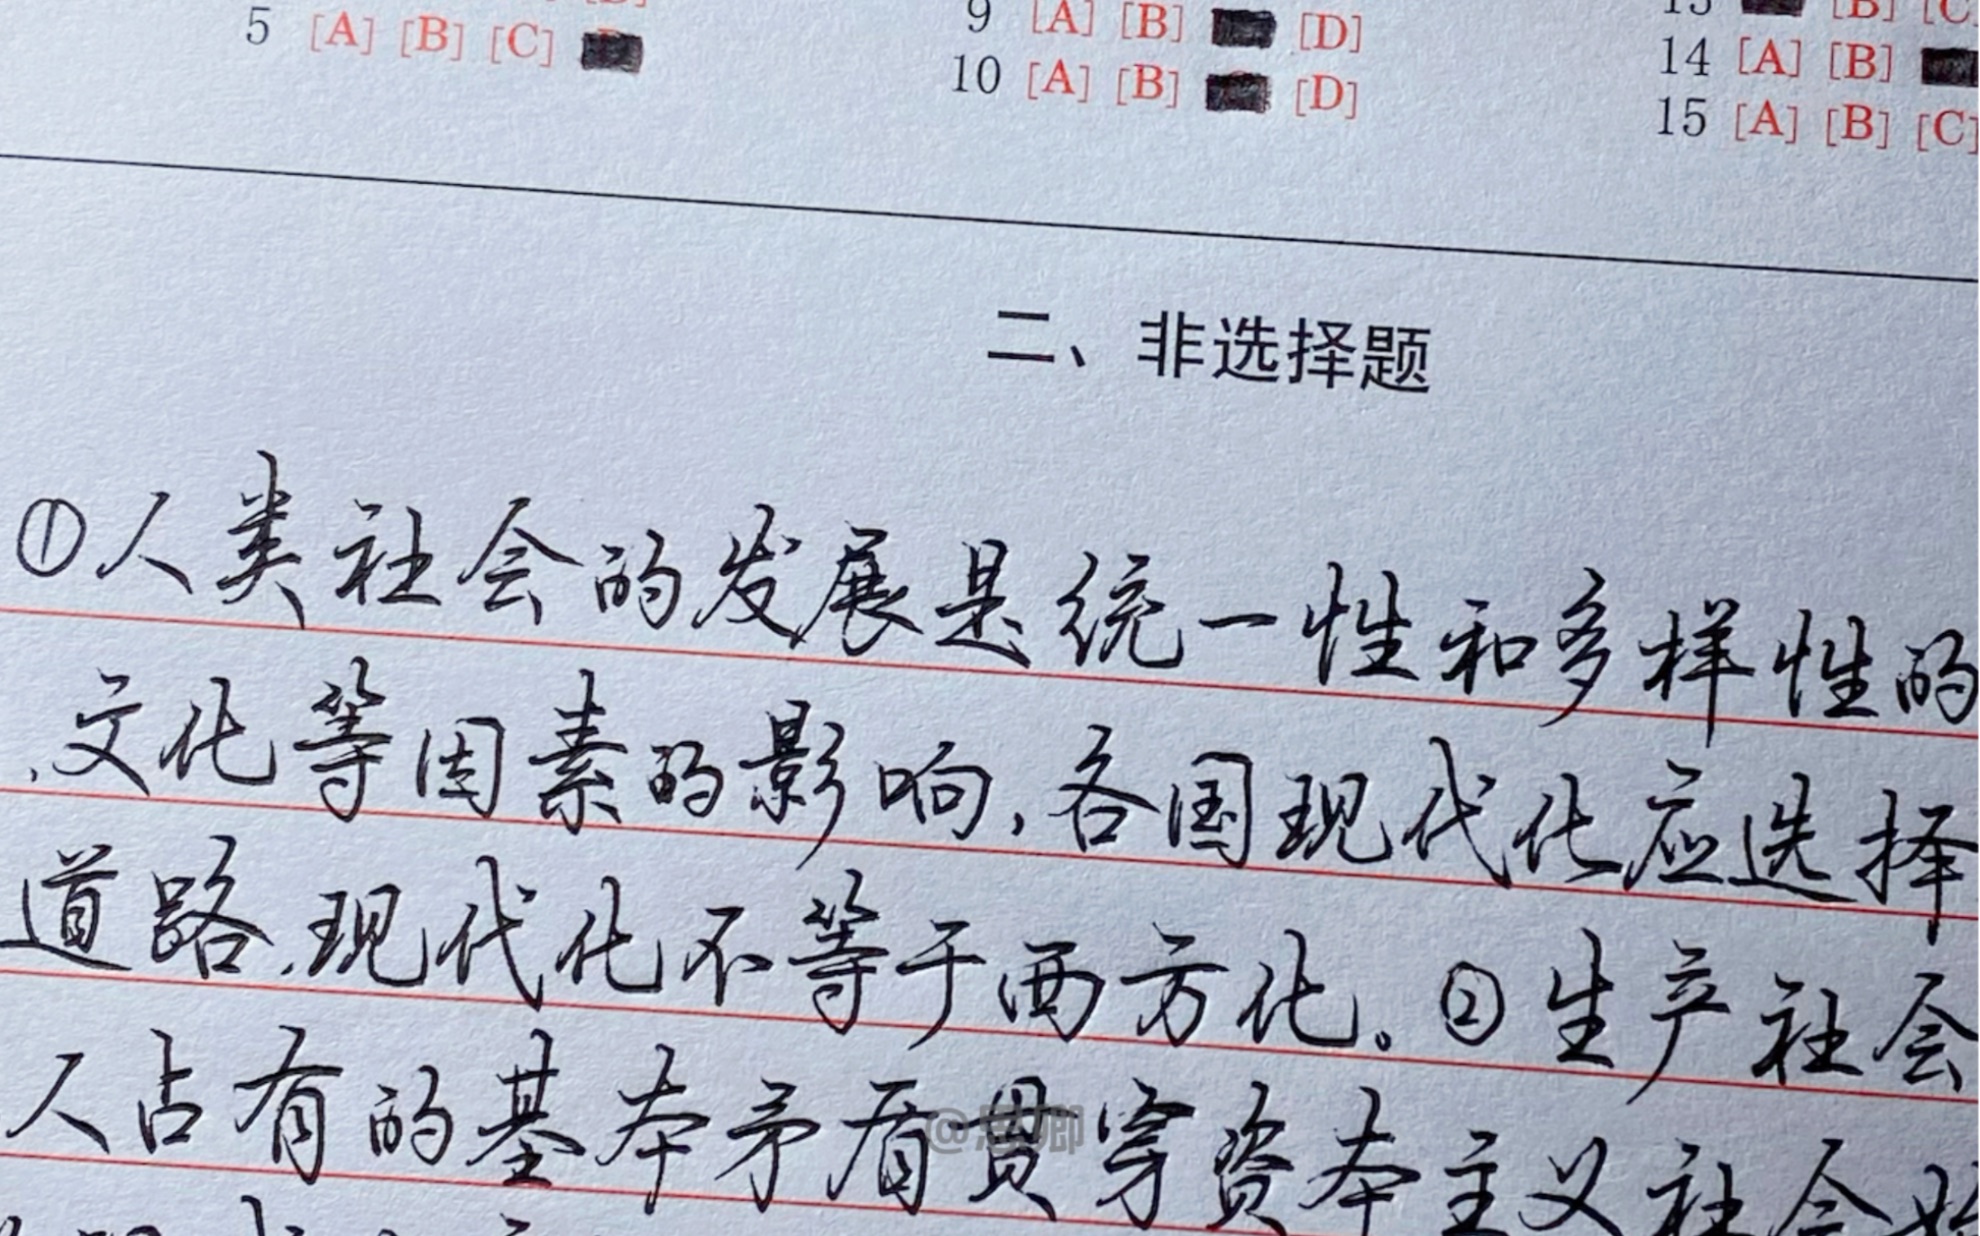 5 [A] [B] [C]
9 [A] [B] [D]
10 [A] [B] [D]
14 [A] [B]
15 [A] [B] [C]
二、非选择题
①人类社会的发展是统一性和多样性的
、文化等因素的影响,各国现代化应选择
道路,现代化不等于西方化。②生产社会
人占有的基本矛盾贯穿资本主义社会始